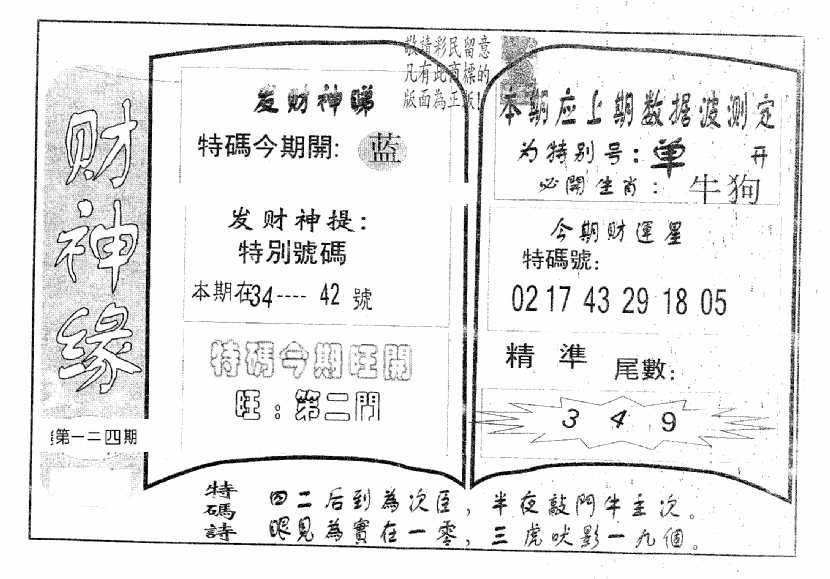 财神缘
第一二四期
敬請彩民留意
凡有此商標的
版面為正版!
发财神睇
特碼今期開: 蓝
发财神提:
特別號碼
本期在34----42號
特碼今期旺開
旺:第二門
本期应上期数据波测定
为特别号:单 开
必開生肖: 牛狗
今期财運星
特碼號:
02 17 43 29 18 05
精準 尾數:
3 4 9
特碼詩
四二后到為次臣,半夜敲門牛主次。
眼見為實在一零,三虎吠影一九個。